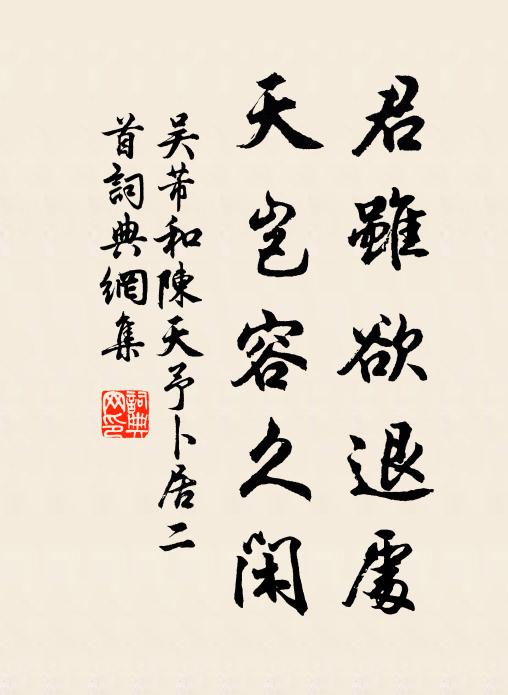 君雖欲退處
天豈容久閑
吳芾和陳天予卜居二
首詞典網集
詞典
网印